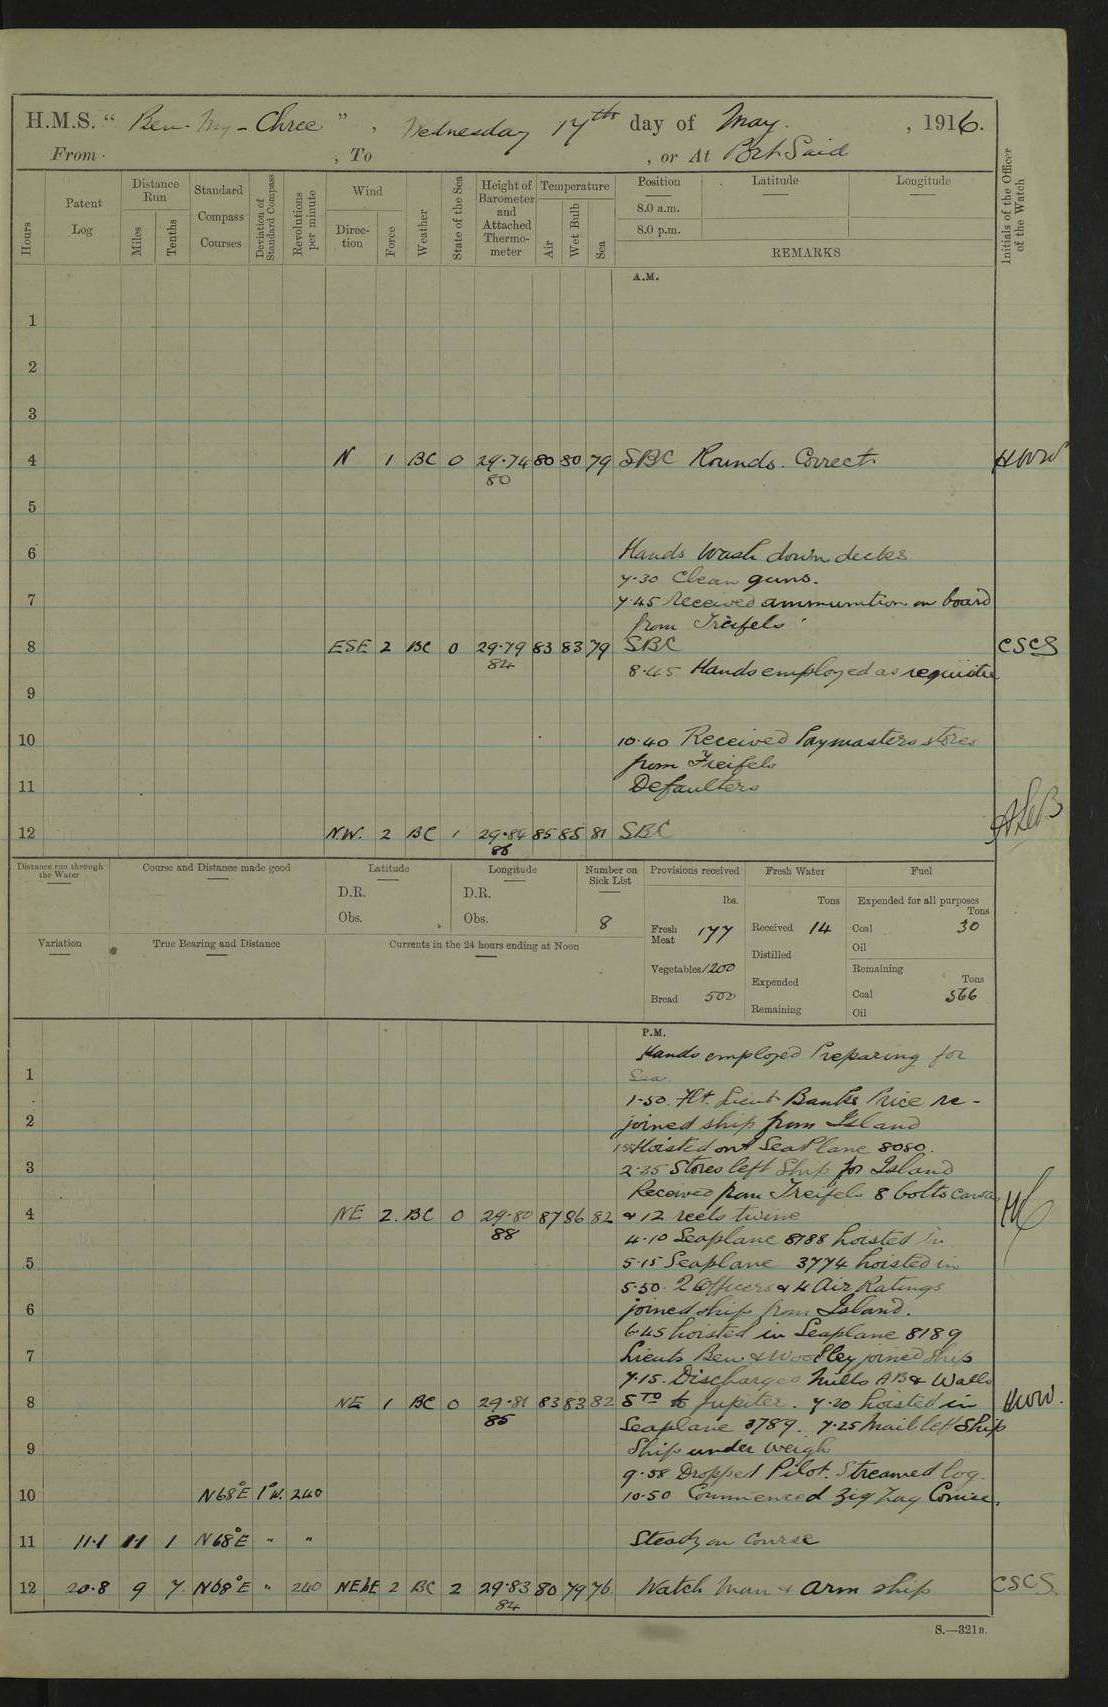 H.M.S. “ Ben-My-Chree ” , Wednesday 17th day of May. , 1916.
From , To , or At Port Said
Hours
Patent Log
Distance Run
Miles
Tenths
Standard Compass Courses
Deviation of Standard Compass
Revolutions per minute
Wind
Direction
Force
Weather
State of the Sea
Height of Barometer and Attached Thermometer
Temperature
Air
Wet Bulb
Sea
Position
Latitude
Longitude
8.0 a.m.
8.0 p.m.
REMARKS
Initials of the Officer of the Watch
A.M.
1
2
3
4 N 1 BC 0 29.74 80 80 79 SBC Rounds. Correct. HWW
80
5
6 Hands Wash down decks
7.30 Clean guns.
7 7.45 received ammunition on board
from Treifels
8 ESE 2 BC 0 29.79 83 83 79 SBC CSCS
84
8.45 Hands employed as requisite
9
10 10.40 Received Paymasters stores
from Treifels
11 Defaulters
12 NW. 2 BC 1 29.84 85 85 81 SBC
86
Distance run through the Water
Course and Distance made good
Latitude
D.R.
Obs.
Longitude
D.R.
Obs.
Number on Sick List
8
Provisions received
lbs.
Fresh Meat 177
Vegetables 1200
Bread 500
Fresh Water
Tons
Received 14
Distilled
Expended
Remaining
Fuel
Expended for all purposes
Tons
Coal 30
Oil
Remaining
Tons
Coal 566
Oil
Variation
True Bearing and Distance
Currents in the 24 hours ending at Noon
P.M.
Hands employed Preparing for
1 Sea.
1.50. Flt. Lieut Banks Price re-
2 joined ship from Island
Hoisted out SeaPlane 8080.
3 2.35 Stores left Ship for Island
Received from Treifels 8 bolts canvas
4 NE 2. BC 0 29.80 87 86 82 & 12 reels twine
88
4.10 Seaplane 8188 hoisted in
5 5.15 Seaplane 3774 hoisted in
5.50. 2 Officers & 4 Air Ratings
6 joined ship from Island.
6.45 hoisted in Seaplane 8189
7 Lieuts Ben & Woolley joined ship
7.15. Discharged Mills AB & Walls
8 NE 1 BC 0 29.81 83 83 82 STO to Jupiter. 7.20 hoisted in HWW.
85
Seaplane 3789. 7.25 Mail left Ship
9 Ship under weigh
9.58 Dropped Pilot. Streamed log.
10 N68°E 1°W. 240 10.50 Commenced Zig Zag Course.
11 11.1 11 1 N68°E " " Steady on Course
12 20.8 9 7 N68°E " 240 NEbE 2 BC 2 29.83 80 79 76 Watch Man & Arm ship CSCS.
84
S.—321B.